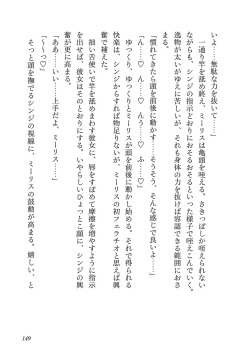 いよ……無駄な力を抜いて……」
一通り竿を舐め終え、ミーリスは亀頭を咥える。さきっぽしか咥えられない
ながらも、シンジの指示どおりにおそるおそるといった様子で咥えこんでいく。
逸物が太いがゆえに苦しいが、それも身体の力を抜けば容認できる範囲におさ
まる。
「慣れてきたら頭を前後に動かす……そうそう、そんな感じで良いよ……」
「ん……♡　ん……♡　んぅ……♡　ふ……♡」
ゆっくり、ゆっくりとミーリスが頭を前後に動かし始める。それで得られる
快楽は、シンジからすれば物足りないが、ミーリスの初フェラチオと思えば興
奮で補えた。
拙い舌使いで竿を舐めまわす彼女に、唇をすぼめて摩擦を増やすように指示
を出せば、彼女はそのとおりにする。いやらしいひょっとこ顔に、シンジの興
奮が更に高まる。
「ああ……いい……上手だよ、ミーリス……」
「～～っ♡」
そっと頭を撫でるシンジの視線に、ミーリスの鼓動が高まる。嬉しい、と
149